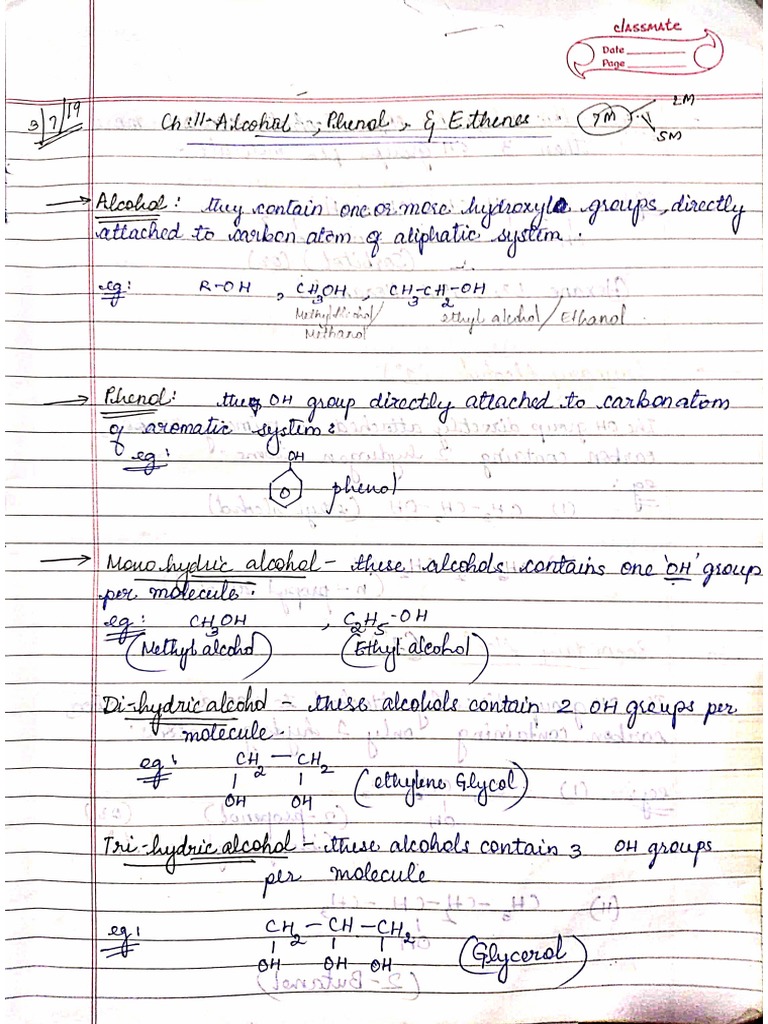 classmate
Date
Page
3/7/19
Ch:11-Alcohol, Phenol, & Ethenes
7M
2M
5M
→ Alcohol: they contain one or more hydroxyl groups, directly
attached to carbon atom of aliphatic system.
eg: R-OH , CH3OH , CH3-CH2-OH
Methyl alcohol/ ethyl alcohol/Ethanol.
Methanol
→ Phenol: the OH group directly attached to carbon atom
of aromatic system:
eg: OH
phenol
→ Mono hydric alcohol - these alcohols contains one 'OH' group
per molecule.
eg: CH3OH , C2H5-OH
(Methyl alcohol) (Ethyl alcohol)
Di-hydric alcohol - these alcohols contain 2 OH groups per
molecule.
eg: CH2 — CH2
OH OH (ethylene Glycol)
Tri-hydric alcohol - these alcohols contain 3 OH groups
per molecule
eg: CH2 — CH — CH2
OH OH OH (Glycerol)